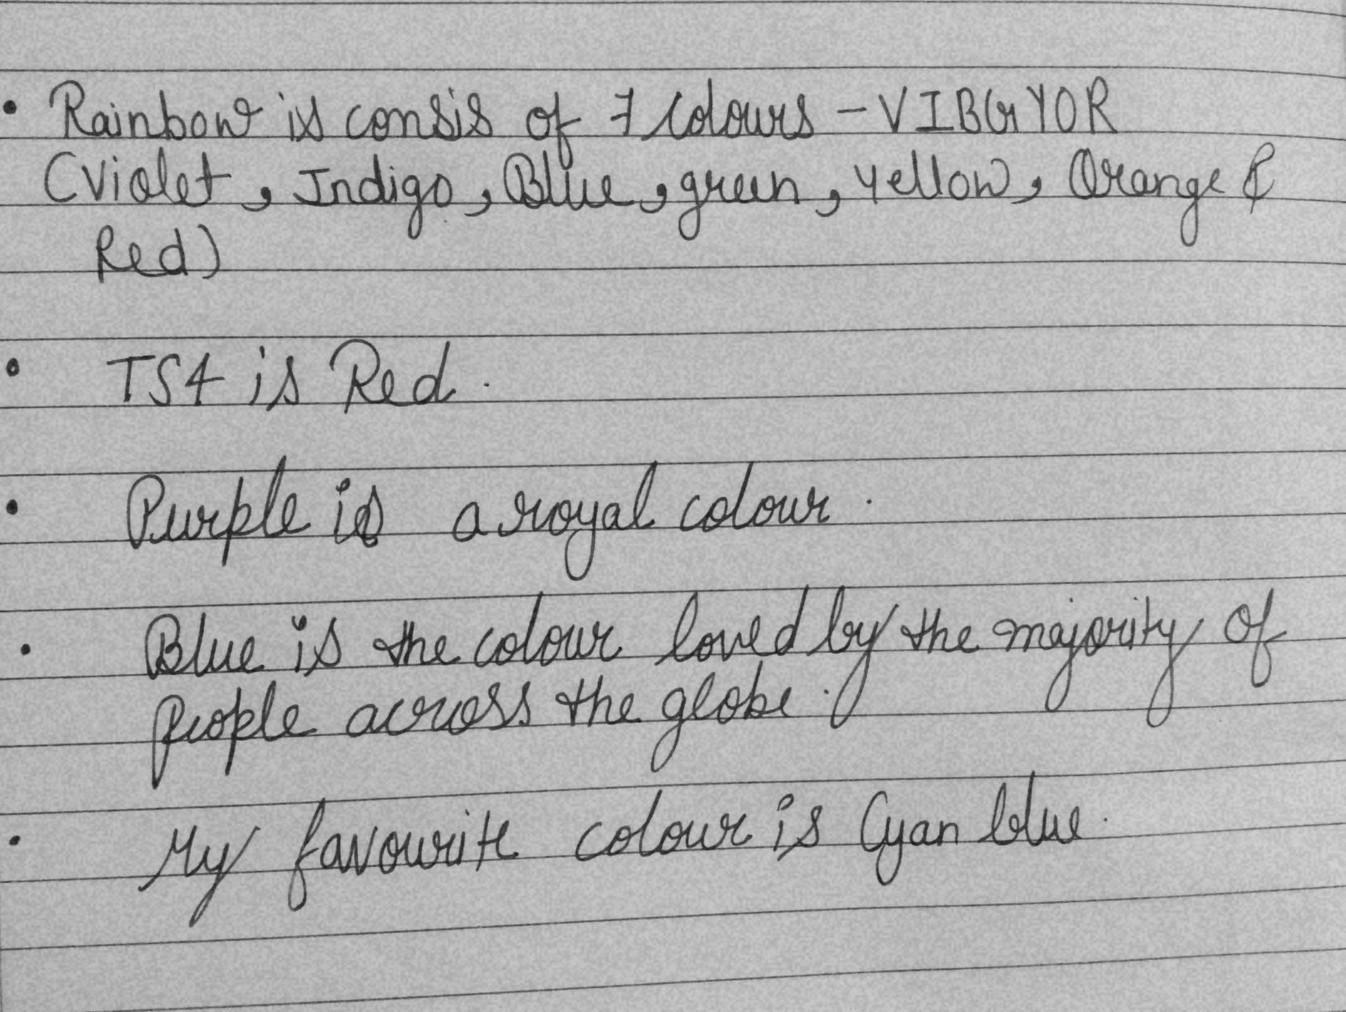 • Rainbow is consis of 7 colours - VIBGYOR
(Violet, Indigo, Blue, green, yellow, Orange &
Red)
• TS4 is Red.
• Purple is a royal colour.
• Blue is the colour loved by the majority of
people across the globe.
• My favourite colour is Cyan blue.